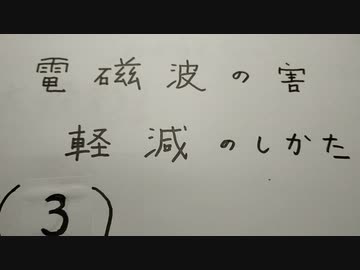 電磁波の害
軽減のしかた
(3)